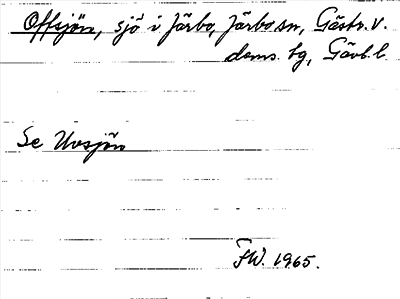 Offsjön, sjö i Järbo, Järbo sn, Gästr. v.
doms. tg, Gävl. l.
Se Uvsjön
FW. 1965.